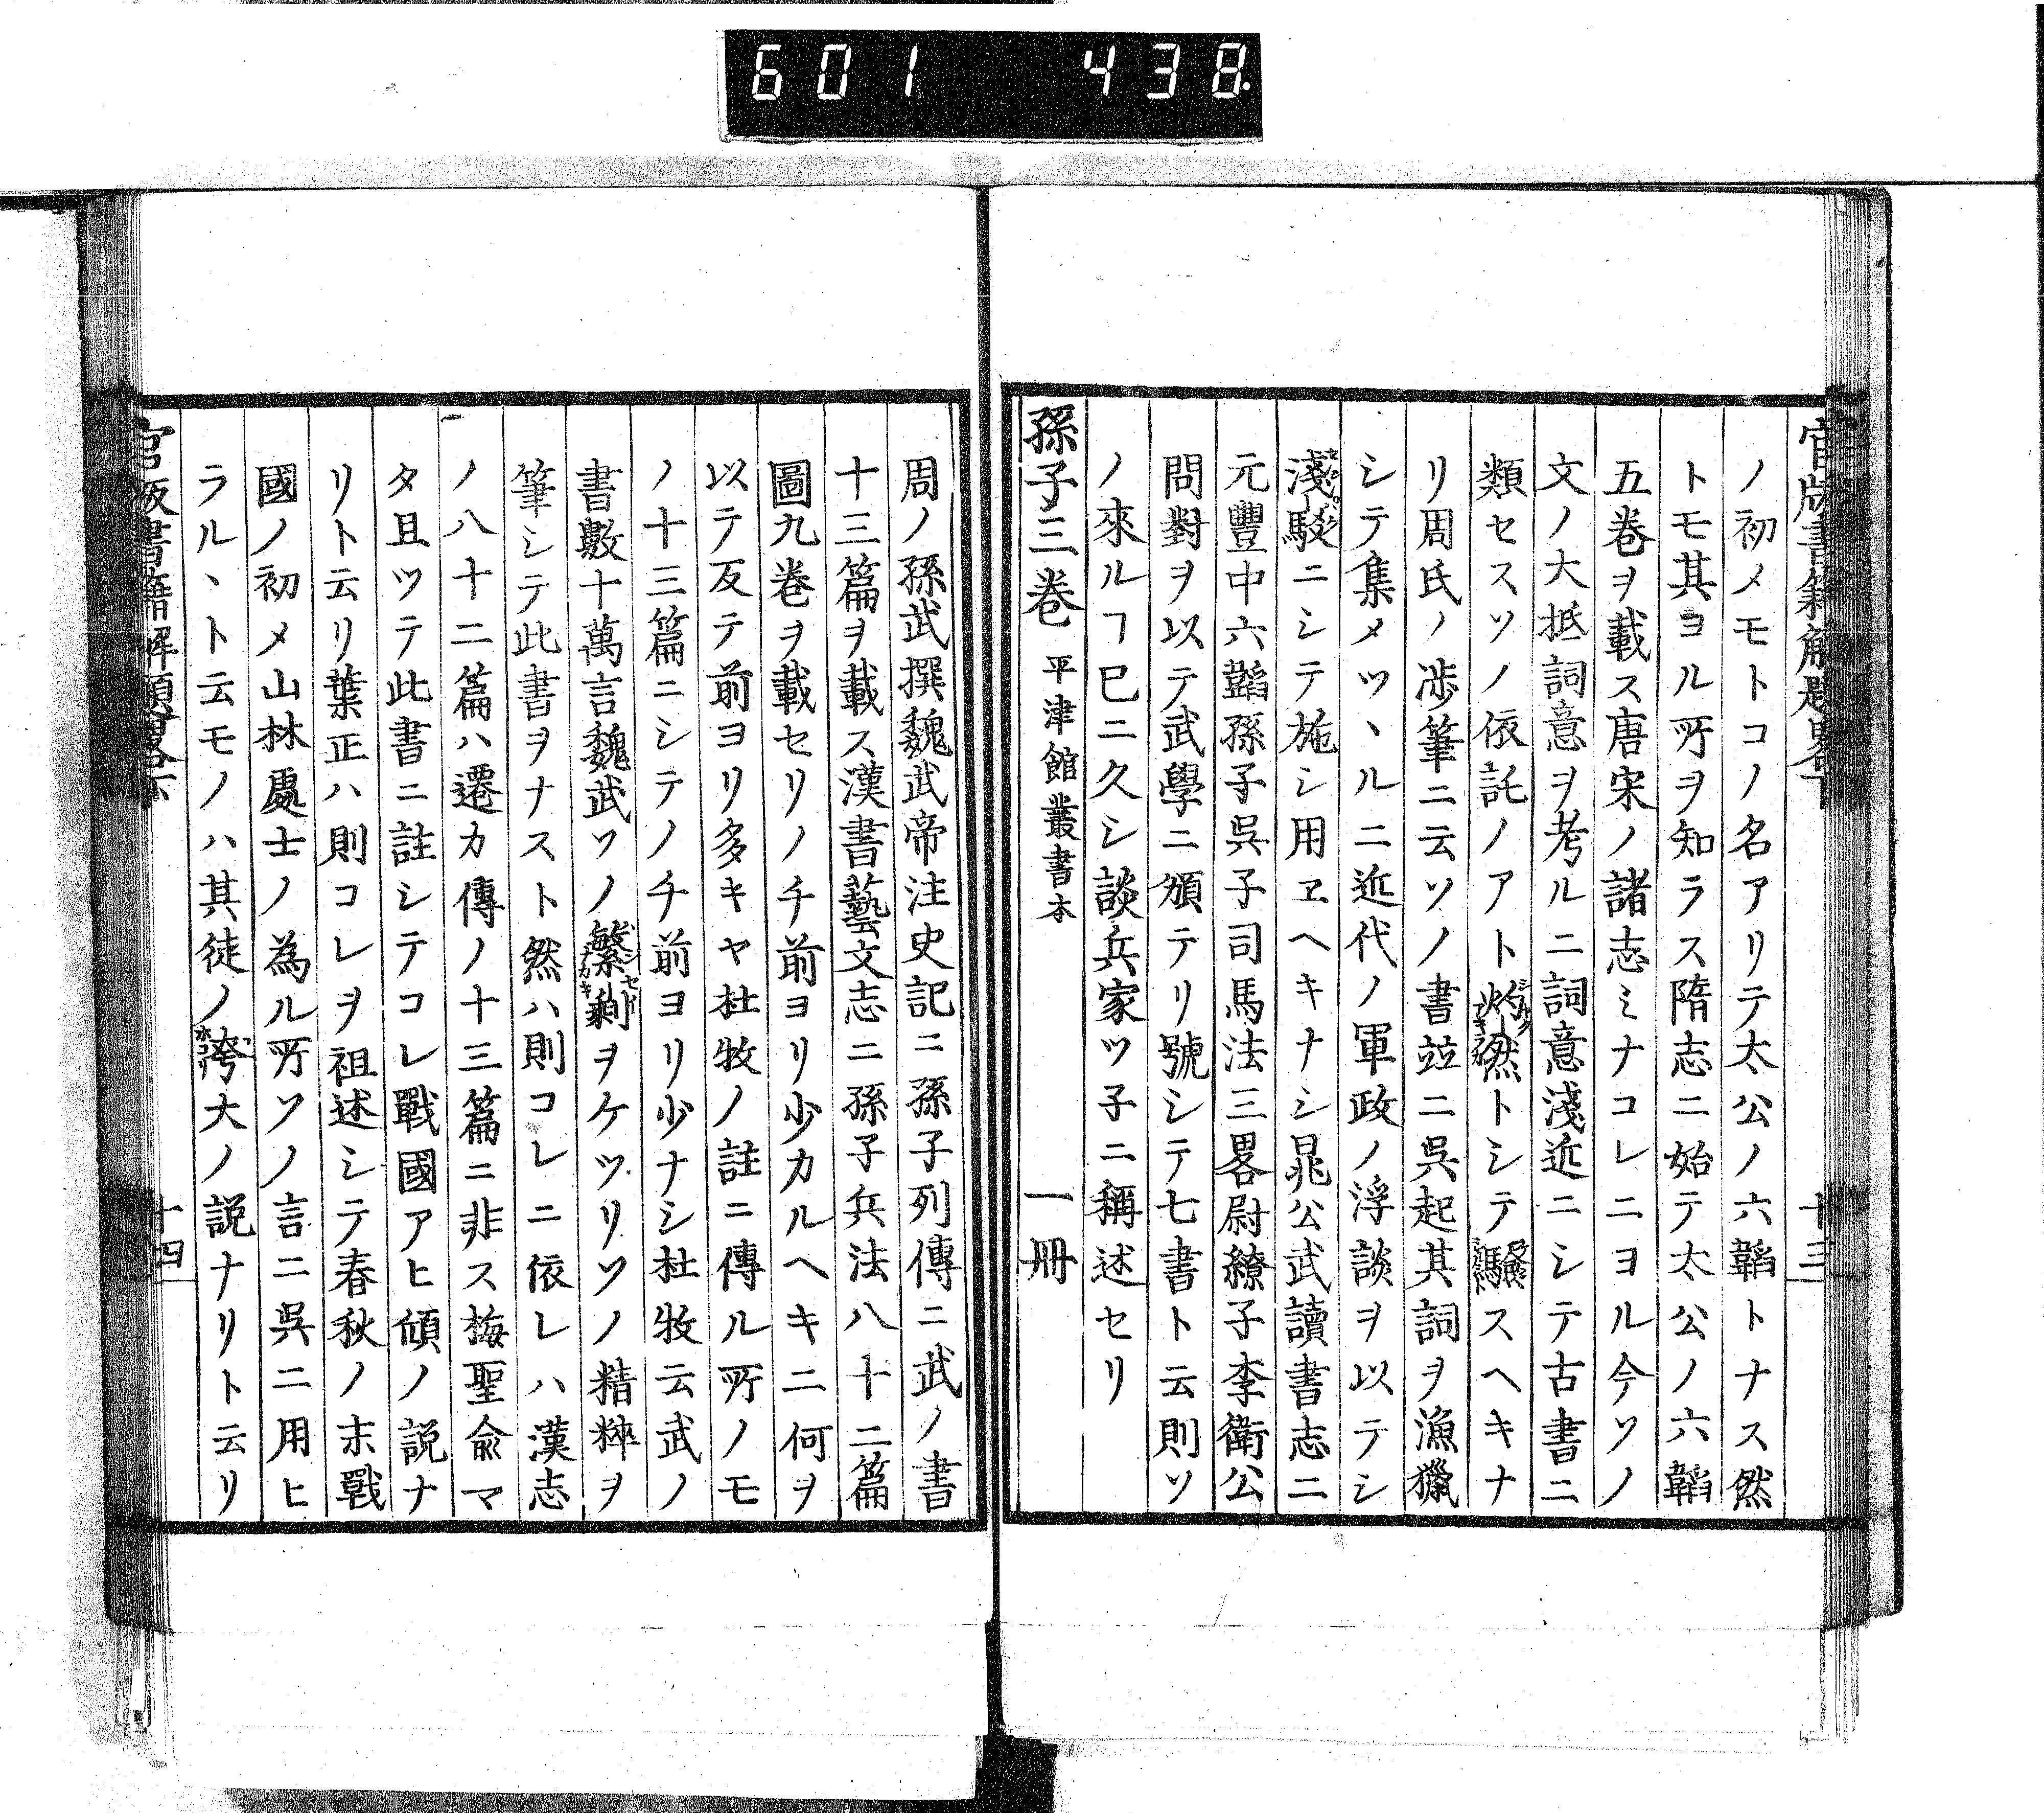 601 438
官版書籍解題畧下 十三
ノ初メモトコノ名アリテ太公ノ六韜トナス然
トモ其ヨル所ヲ知ラス隋志ニ始テ太公ノ六韜
五巻ヲ載ス唐宋ノ諸志ミナコレニヨル今ソノ
文ノ大抵詞意ヲ考ルニ詞意淺近ニシテ古書ニ
類セスソノ依託ノアト灼然トシテ驗スヘキナ
リ周氏ノ渉筆ニ云ソノ書竝ニ呉起其詞ヲ漁獵
シテ集メツヽルニ近代ノ軍政ノ浮談ヲ以テシ
淺駁ニシテ施シ用ヱヘキナシ晁公武讀書志ニ
元豐中六韜孫子呉子司馬法三畧尉繚子李衛公
問對ヲ以テ武學ニ頒テリ號シテ七書ト云則ソ
ノ來ルヿ巳ニ久シ談兵家ツ子ニ稱述セリ
孫子三巻 平津館叢書本 一冊
周ノ孫武撰魏武帝注史記ニ孫子列傳ニ武ノ書
十三篇ヲ載ス漢書藝文志ニ孫子兵法八十二篇
圖九巻ヲ載セリノチ前ヨリ少カルヘキニ何ヲ
以テ反テ前ヨリ多キヤ杜牧ノ註ニ傳ル所ノモ
ノ十三篇ニシテノチ前ヨリ少ナシ杜牧云武ノ
書數十萬言魏武ソノ繁剩ヲケツリソノ精粹ヲ
筆シテ此書ヲナスト然ハ則コレニ依レハ漢志
ノ八十二篇ハ遷カ傳ノ十三篇ニ非ス梅聖兪マ
タ且ツテ此書ニ註シテコレ戰國アヒ傾ノ説ナ
リト云リ葉正ハ則コレヲ祖述シテ春秋ノ末戰
國ノ初メ山林處士ノ為ル所ソノ言ニ呉ニ用ヒ
ラルヽト云モノハ其徒ノ誇大ノ説ナリト云リ
官版書籍解題畧下 十四